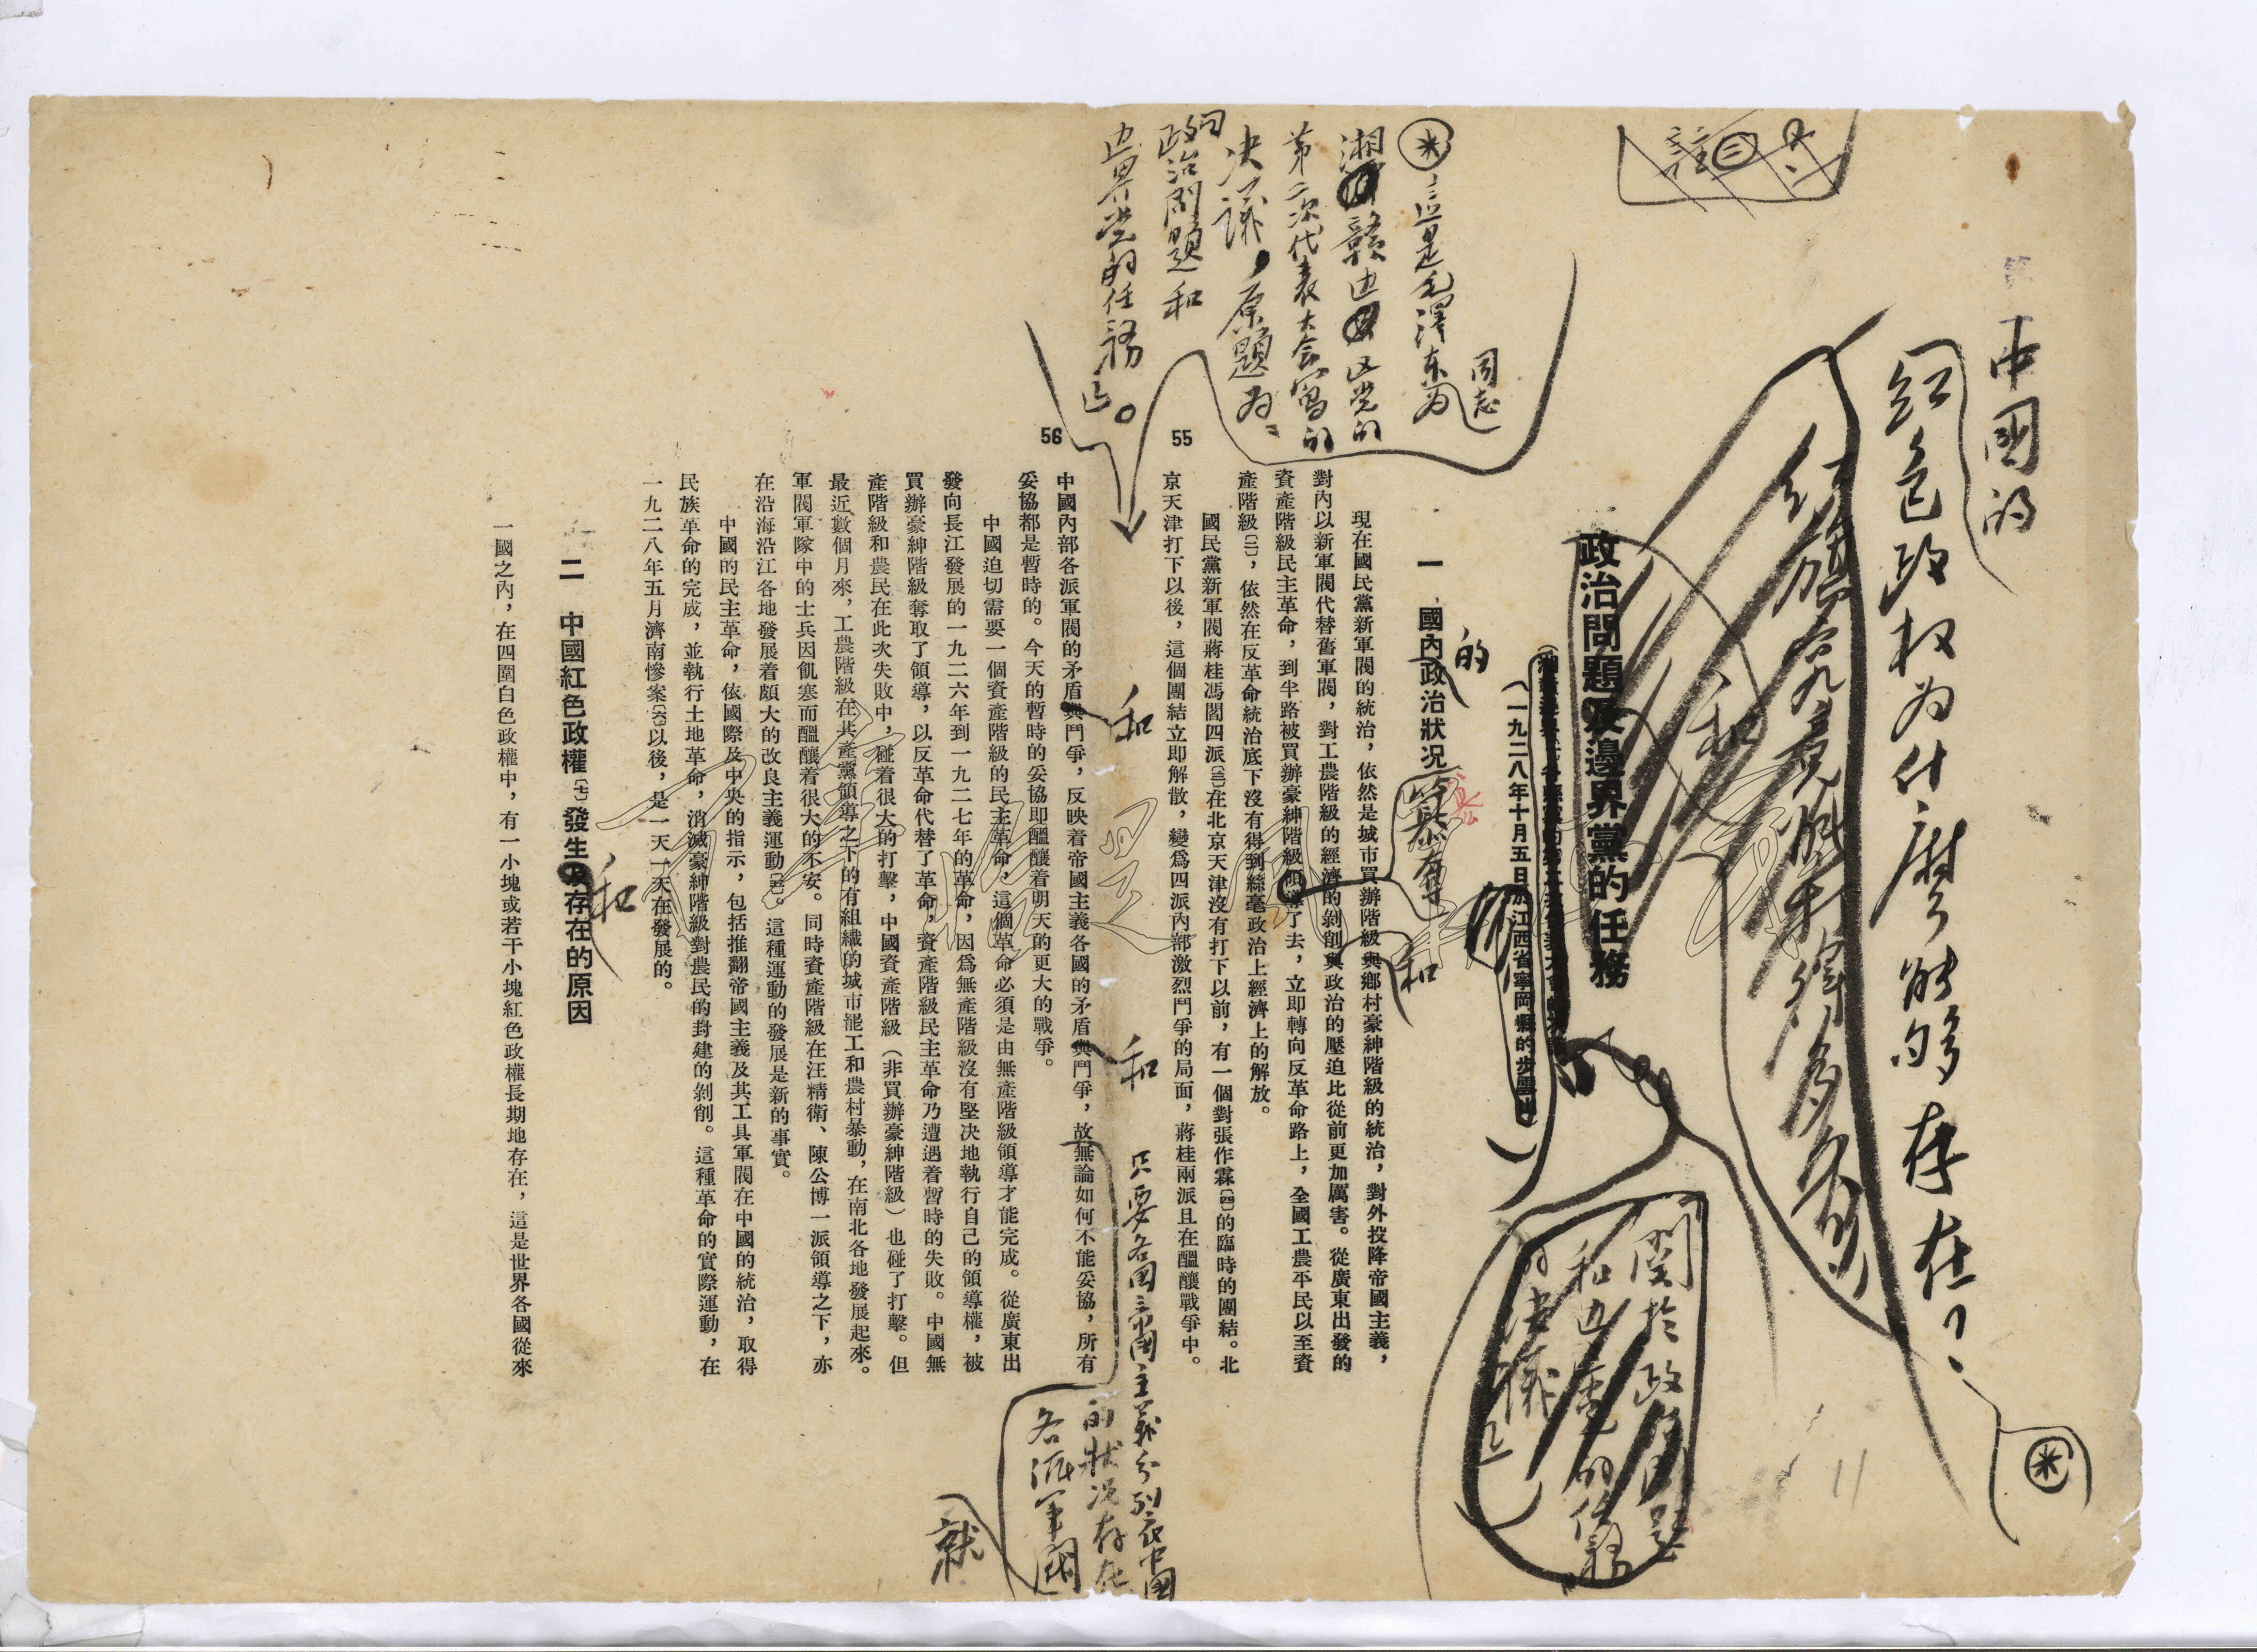 中國的
红色政权为什麽能够存在？
註㊂
和
政治問題及邊界黨的任務
關於政治問題
（一九二八年十月五日於江西省寧岡縣的步雲山）
的
一　國內政治狀况
篡奪
和
※這是毛澤东同志为
湘贛边区党的
第二次代表大会寫的
决議，原題为：
「政治問題和
边界党的任務」。
55
現在國民黨新軍閥的統治，依然是城市買辦階級與鄉村豪紳階級的統治，對外投降帝國主義，
對內以新軍閥代替舊軍閥，對工農階級的經濟的剝削與政治的壓迫比從前更加厲害。從廣東出發的
資產階級民主革命，到半路被買辦豪紳階級領導了去，立即轉向反革命路上，全國工農平民以至資
產階級〔二〕，依然在反革命統治底下沒有得到絲毫政治上經濟上的解放。
國民黨新軍閥蔣桂馮閻四派〔三〕在北京天津沒有打下以前，有一個對張作霖〔四〕的臨時的團結。北
京天津打下以後，這個團結立即解散，變爲四派內部激烈鬥爭的局面，蔣桂兩派且在醞釀戰爭中。
和
和
只要各国帝国主義分列〔裂〕中國
的狀况存在
各派軍閥
就
56
中國內部各派軍閥的矛盾與鬥爭，反映着帝國主義各國的矛盾與鬥爭，故無論如何不能妥協，所有
妥協都是暫時的。今天的暫時的妥協即醞釀着明天的更大的戰爭。
中國迫切需要一個資產階級的民主革命，這個革命必須是由無產階級領導才能完成。從廣東出
發向長江發展的一九二六年到一九二七年的革命，因爲無產階級沒有堅決地執行自己的領導權，被
買辦豪紳階級奪取了領導，以反革命代替了革命，資產階級民主革命乃遭遇着暫時的失敗。中國無
產階級和農民在此次失敗中，碰着很大的打擊，中國資產階級（非買辦豪紳階級）也碰了打擊。但
最近數個月來，工農階級在共產黨領導之下的有組織的城市罷工和農村暴動，在南北各地發展起來。
軍閥軍隊中的士兵因飢寒而醞釀着很大的不安。同時資產階級在汪精衛、陳公博一派領導之下，亦
在沿海沿江各地發展着頗大的改良主義運動〔五〕。這種運動的發展是新的事實。
中國的民主革命，依國際及中央的指示，包括推翻帝國主義及其工具軍閥在中國的統治，取得
民族革命的完成，並執行土地革命，消滅豪紳階級對農民的封建的剝削。這種革命的實際運動，在
一九二八年五月濟南慘案〔六〕以後，是一天一天在發展的。
和
二　中國紅色政權〔七〕發生及存在的原因
一國之內，在四圍白色政權中，有一小塊或若干小塊紅色政權長期地存在，這是世界各國從來